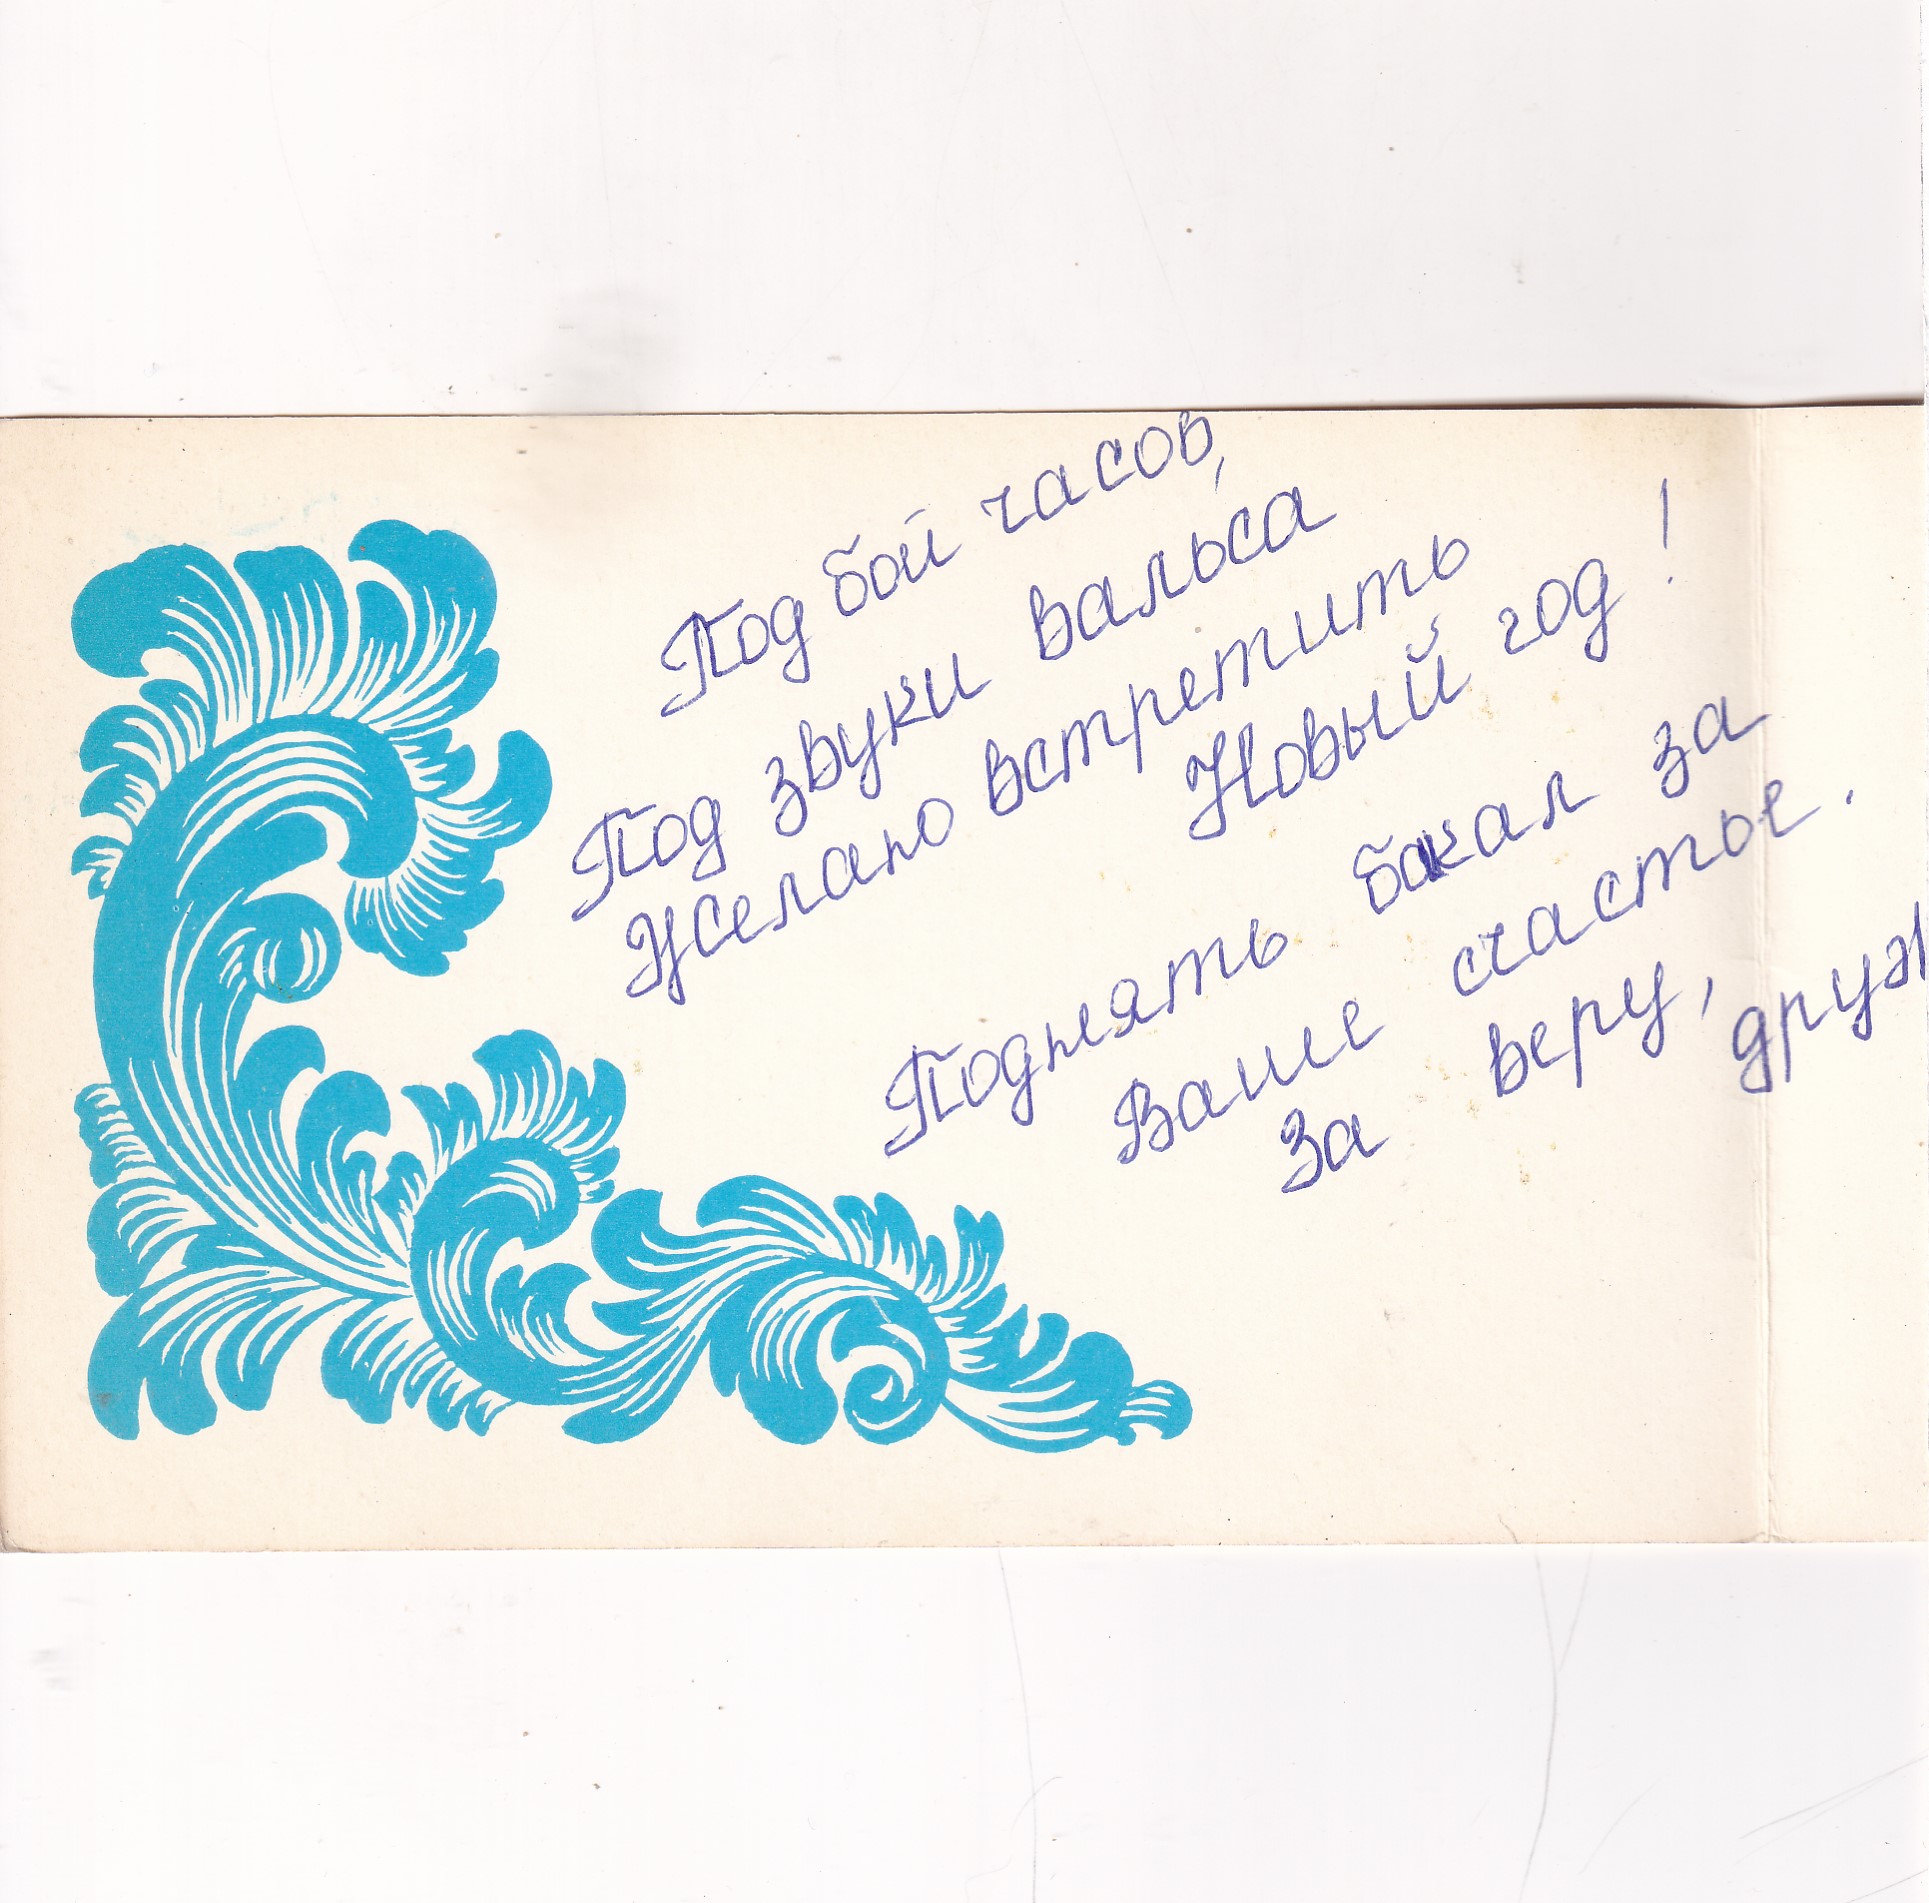 Под бой часов,
Под звуки вальса
Желаю встретить
Новый год!
Поднять бокал за
Ваше счастье.
За веру,